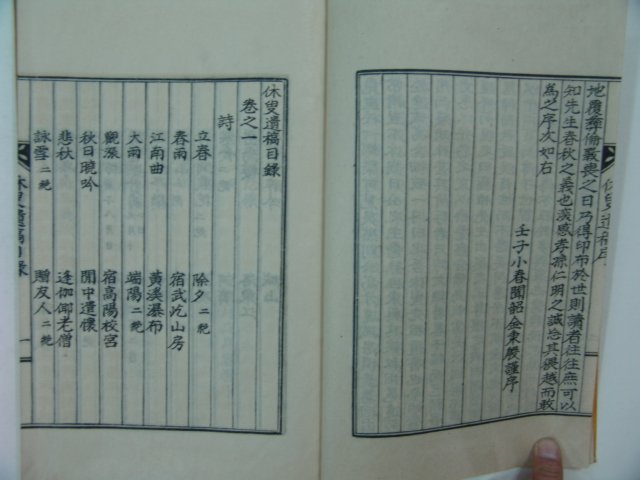 休叟遺稿序
地覆彝倫義喪之日乃得印布於世則讀者往往庶可以
知先生春秋之義也後感孝孫仁明之誠忘其猥越而敢
為之序次如右
壬子小春聞韶金秉殷謹序
休叟遺稿目錄
卷之一
詩
立春 除夕二絶
春雨 宿武屹山房
江南曲 黃溪瀑布
大雨 端陽二絶
觀漲 宿高陽校宮
秋日曉吟 閒中遣懷
悲秋 逢伽倻老僧
詠雪二絶 贈友人二絶
休叟遺稿目錄 一